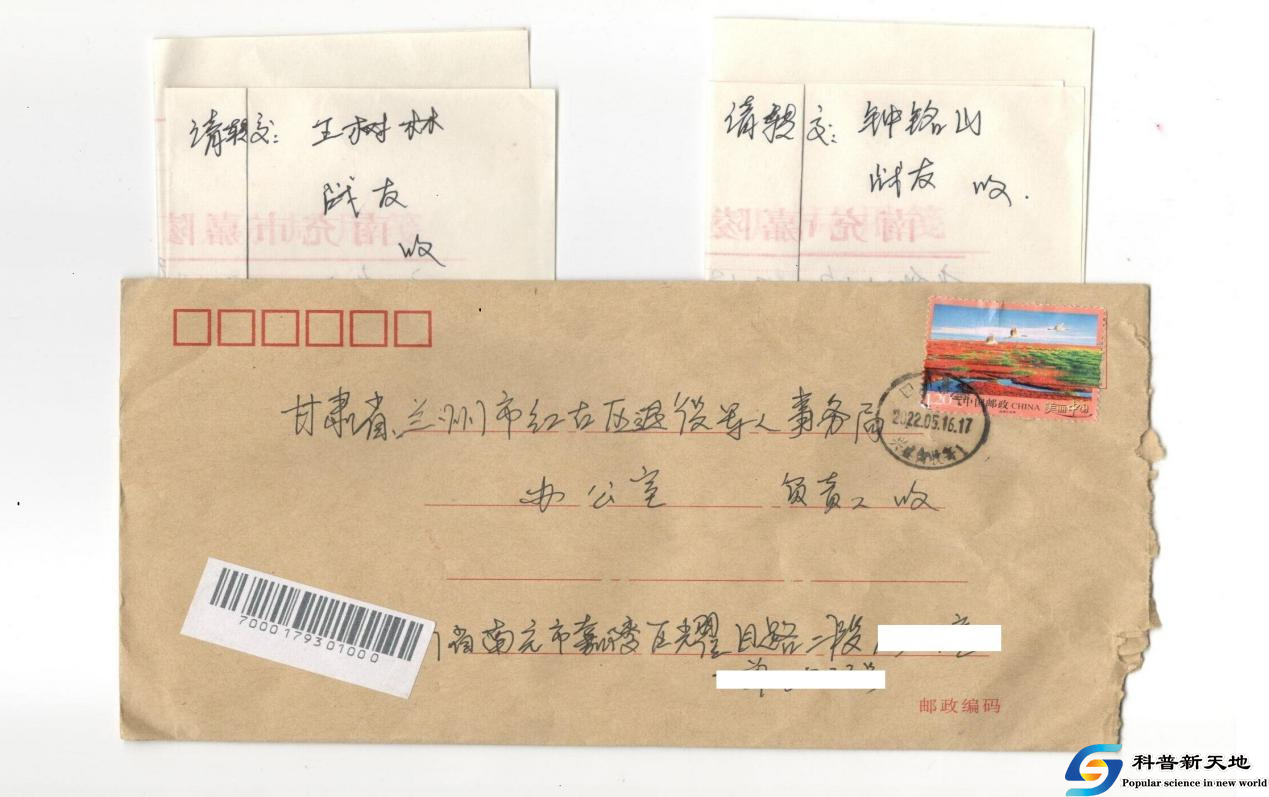 请转交：王树林
战友
收
请转交：钟铭山
战友 收.
新南充市嘉陵
新南充市嘉陵
1.20元 中国邮政 CHINA 美丽中国
2022.05.16.17
甘肃省兰州市红古区退役军人事务局
办公室 负责人收
7000179301000
省南充市嘉陵区耀目路二段
邮政编码
科普新天地
Popular science in new world